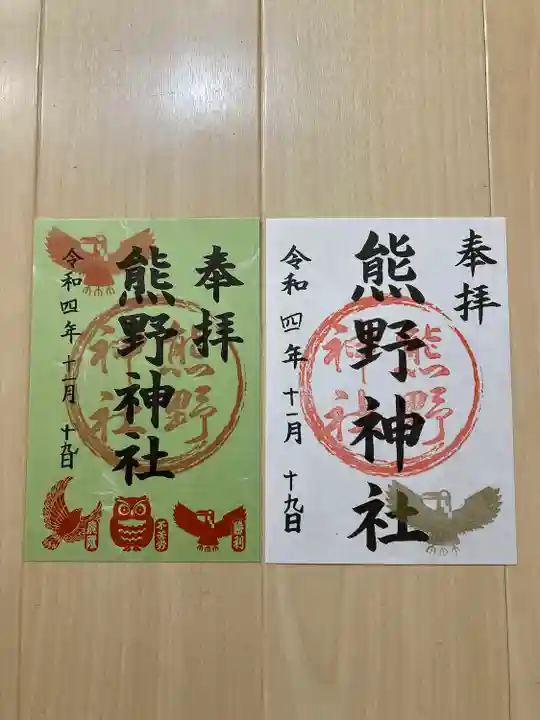 奉拝
熊野神社
熊野
神社
令和四年 十一月 十九日
飛躍
不苦労
勝利
奉拝
熊野神社
熊野
神社
令和四年 十一月 十九日